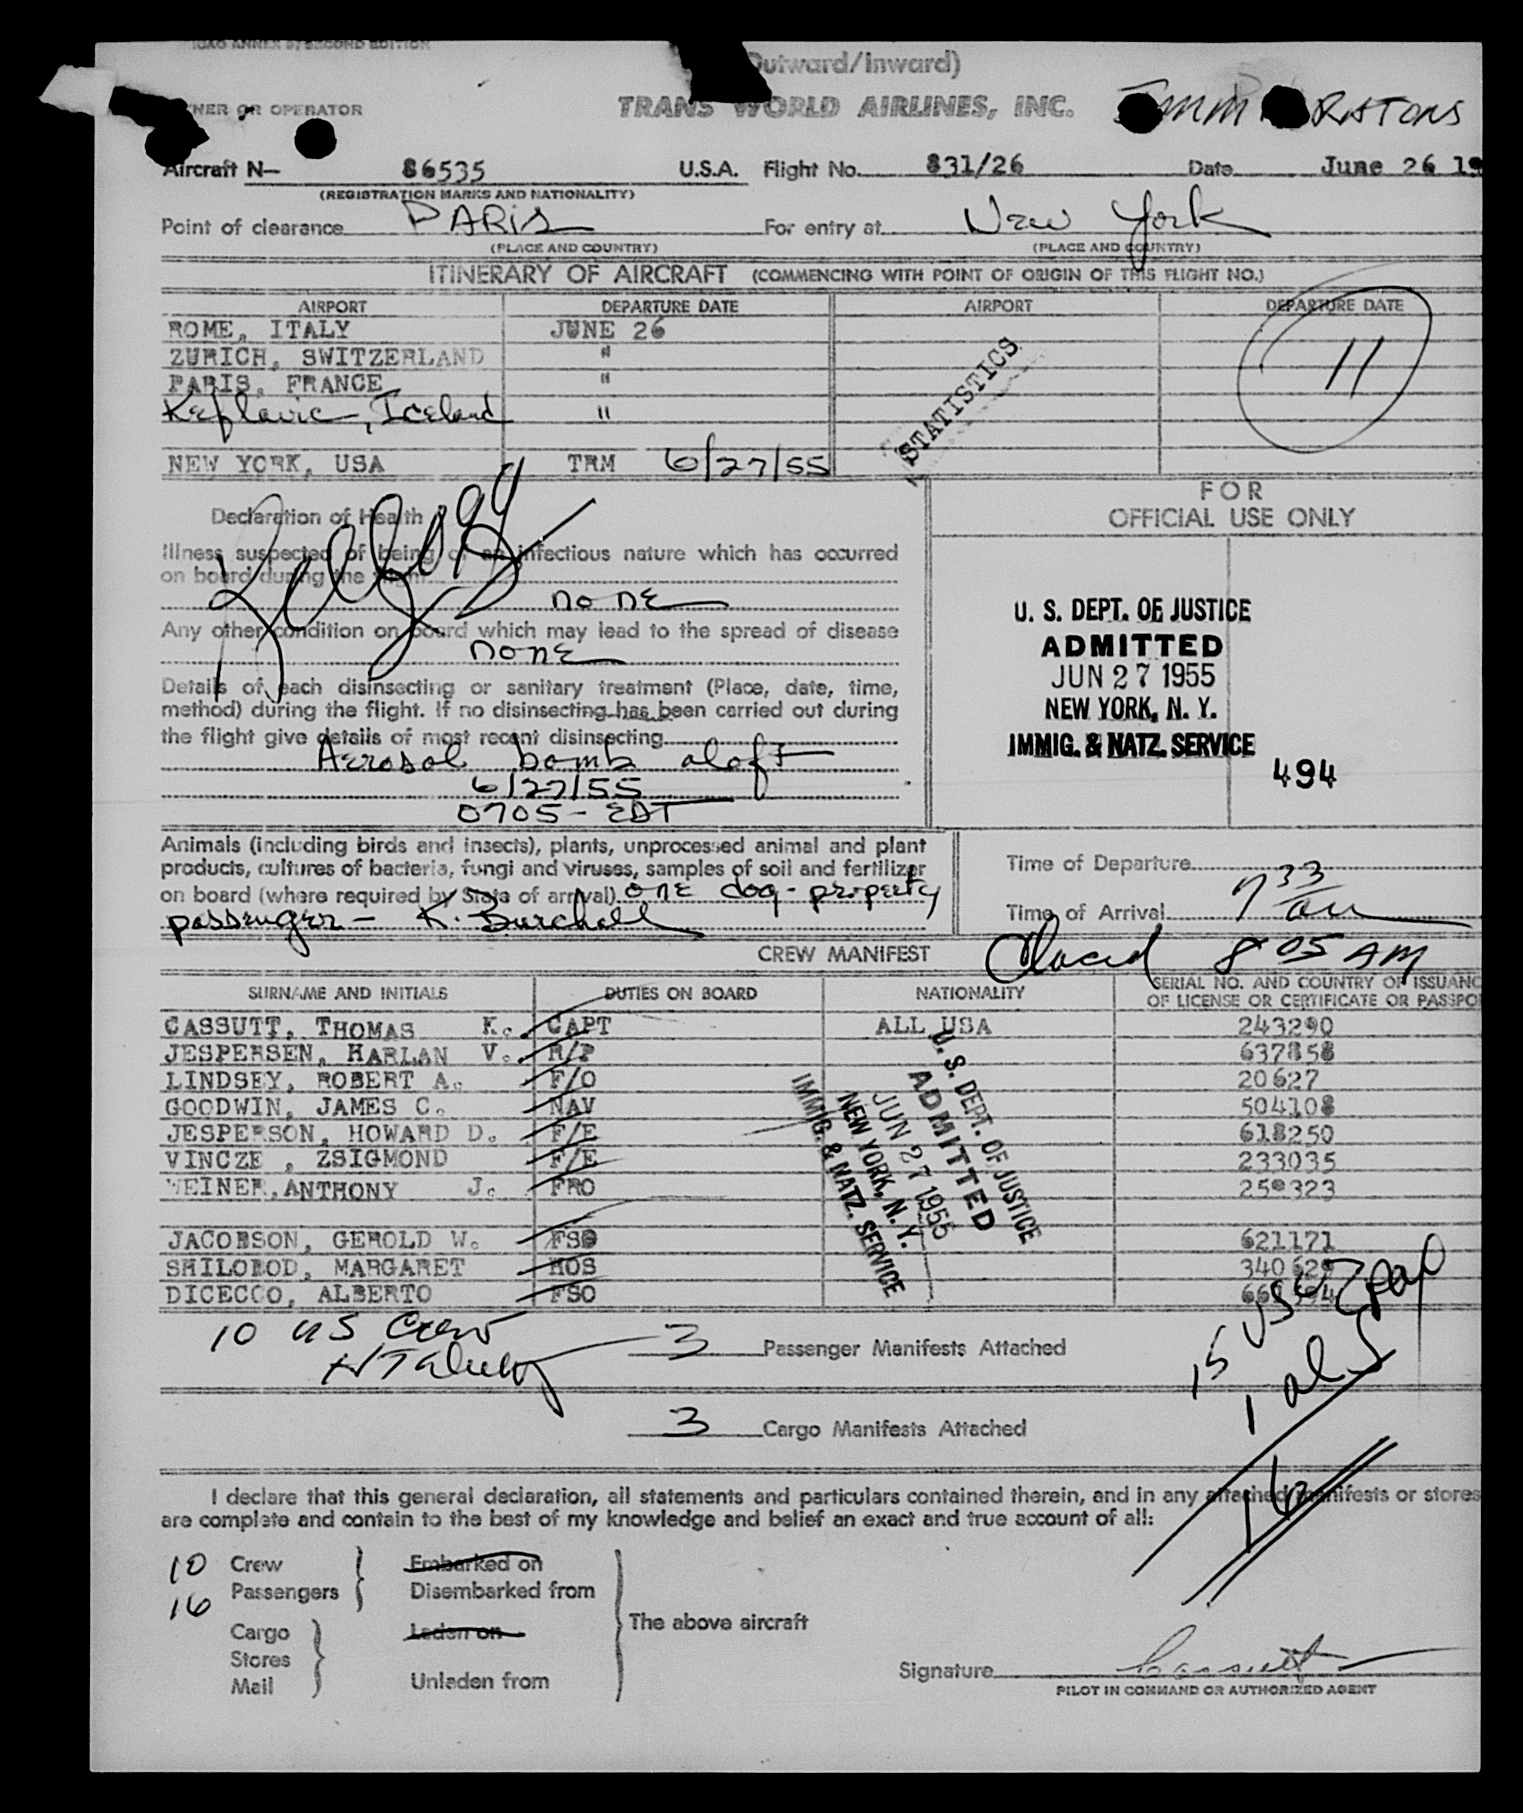 ICAO ANNEX 9, SECOND EDITION
(Outward/Inward)
OWNER OR OPERATOR TRANS WORLD AIRLINES, INC.
Aircraft N— 86535 U.S.A. Flight No. 831/26 Date June 26 19
(REGISTRATION MARKS AND NATIONALITY)
Point of clearance PARIS For entry at New York
(PLACE AND COUNTRY) (PLACE AND COUNTRY)
ITINERARY OF AIRCRAFT (COMMENCING WITH POINT OF ORIGIN OF THIS FLIGHT NO.)
AIRPORT DEPARTURE DATE AIRPORT DEPARTURE DATE
ROME, ITALY JUNE 26
ZURICH, SWITZERLAND "
PARIS, FRANCE "
Keflavic, Iceland "
11
STATISTICS
NEW YORK, USA TRM 6/27/55
FOR
OFFICIAL USE ONLY
Declaration of Health
Illness suspected of being of an infectious nature which has occurred
on board during the flight
none
Any other condition on board which may lead to the spread of disease
none
Details of each disinsecting or sanitary treatment (Place, date, time,
method) during the flight. If no disinsecting has been carried out during
the flight give details of most recent disinsecting
Aerosol bomb aloft
6/27/55
0705 - EDT
U. S. DEPT. OF JUSTICE
ADMITTED
JUN 27 1955
NEW YORK, N. Y.
IMMIG. & NATZ. SERVICE
494
Animals (including birds and insects), plants, unprocessed animal and plant
products, cultures of bacteria, fungi and viruses, samples of soil and fertilizer
on board (where required by State of arrival) one dog - property
passenger - K. Burchell
Time of Departure
Time of Arrival 7 33 am
Placed 8 05 AM
CREW MANIFEST
SURNAME AND INITIALS DUTIES ON BOARD NATIONALITY SERIAL NO. AND COUNTRY OF ISSUANC
OF LICENSE OR CERTIFICATE OR PASSPO
CASSUTT, THOMAS K. CAPT ALL USA 243290
JESPERSEN, HARLAN V. R/P 637858
LINDSEY, ROBERT A. F/O 20627
GOODWIN, JAMES C. NAV 504108
JESPERSON, HOWARD D. F/E 618250
VINCZE , ZSIGMOND F/E 233035
WEINER, ANTHONY J. FRO
JACOBSON, GEROLD W. FSO 621171
SHILOBOD, MARGARET HOS
DICECCO, ALBERTO FSO
U. S. DEPT. OF JUSTICE
ADMITTED
JUN 27 1955
NEW YORK, N. Y.
IMMIG. & NATZ. SERVICE
10 US Crew
3 Passenger Manifests Attached
15 USC
1 al
16
3 Cargo Manifests Attached
I declare that this general declaration, all statements and particulars contained therein, and in any attached manifests or stores
are complete and contain to the best of my knowledge and belief an exact and true account of all:
10 Crew Embarked on
16 Passengers Disembarked from
The above aircraft
Cargo Laden on
Stores
Mail Unladen from
Signature Cassutt
PILOT IN COMMAND OR AUTHORIZED AGENT